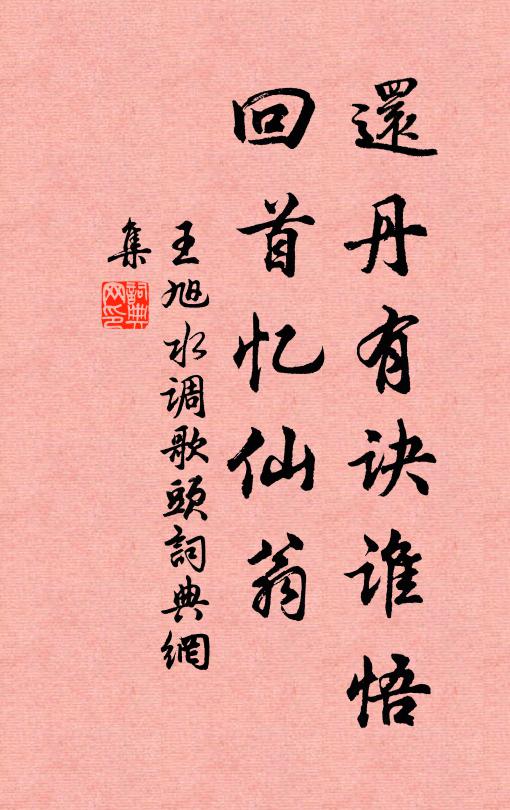 還丹有诀谁悟
回首忆仙翁
王旭水调歌頭詞典網
集
詞典
网印